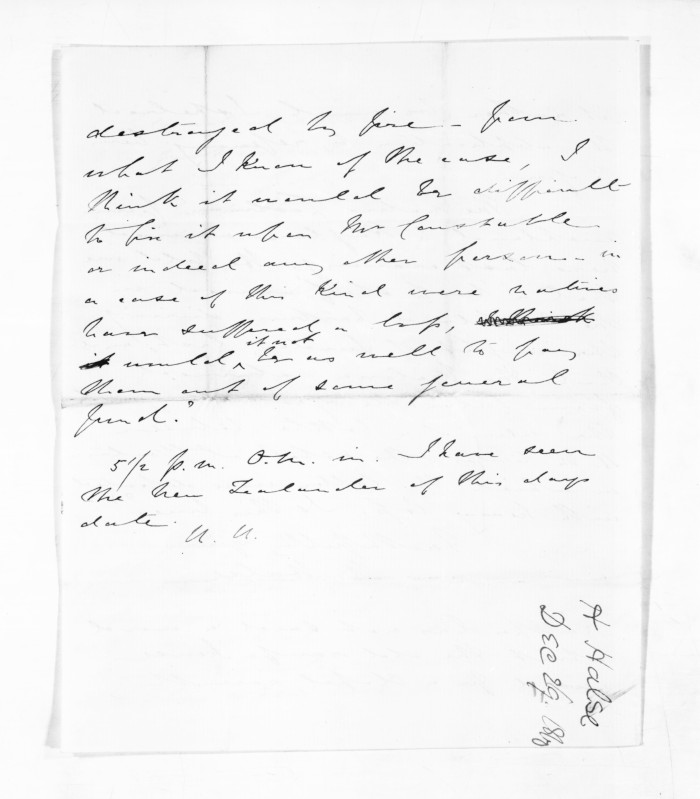 destroyed by fire – from
what I know of the case, I
think it would be difficult
to fix it upon Mr Constable
or indeed any other person – in
a case of this kind were natives
have suffered a loss,
it would, it not be as well to pay
them out of some general
fund?
5 1/2 p.m. O.M. in. I have seen
the New Zealander of this days
date.
H. H.
H Halse
DEC 29